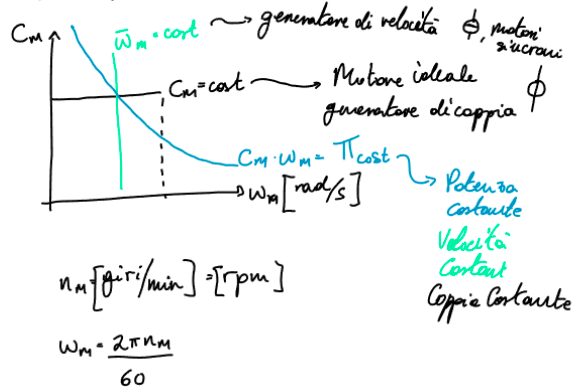 C_M
ω̄_M = cost → generatore di velocità ϕ, motori sincroni
C_M = cost → Motore ideale
generatore di coppia ϕ
C_M · ω_M = Π cost → Potenza costante
ω_M [rad/s]
Velocità
Costant
Coppia Costante
n_M = [giri/min] = [rpm]
ω_M = 2πn_M / 60